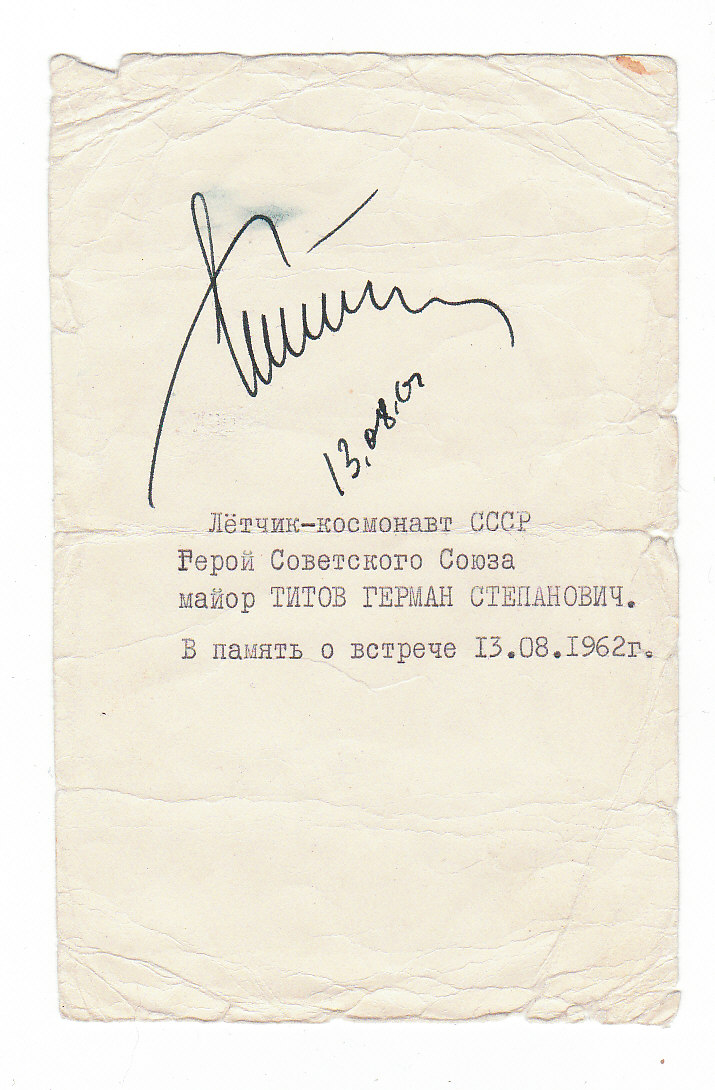 13.08.
Лётчик-космонавт СССР
Герой Советского Союза
майор ТИТОВ ГЕРМАН СТЕПАНОВИЧ.
В память о встрече 13.08.1962г.